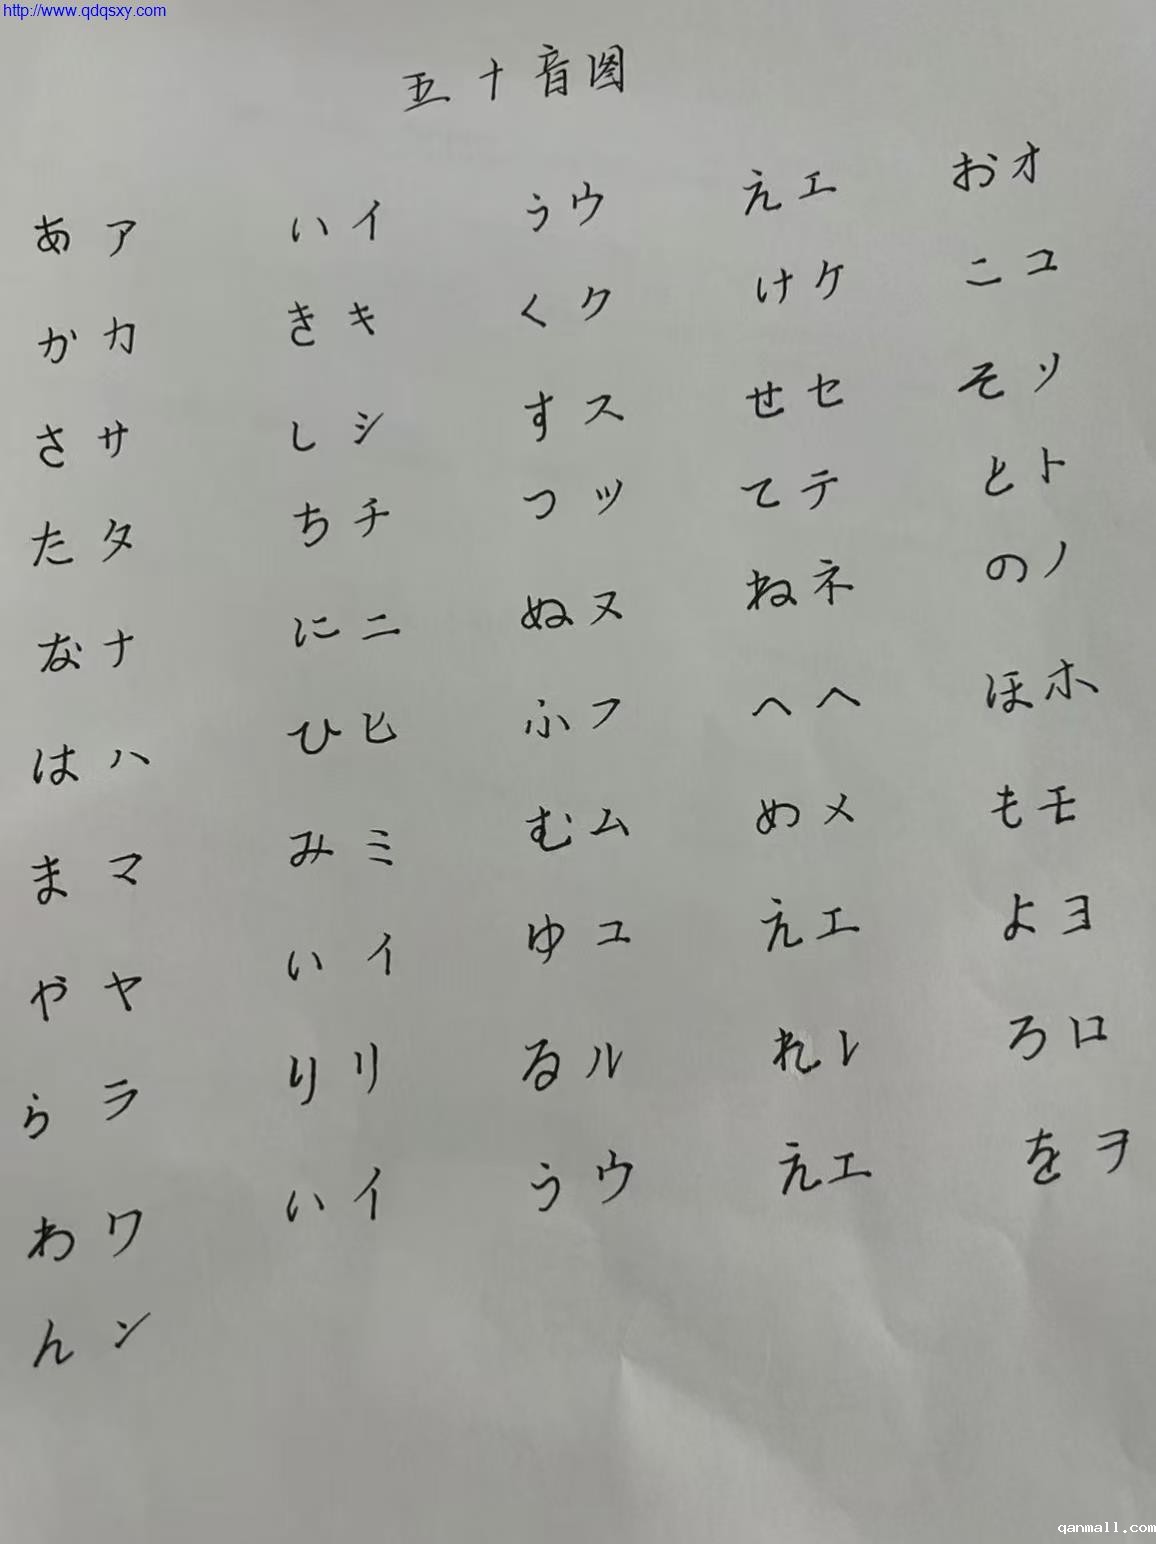 http://www.qdqsxy.com
五十音图
あ ア い イ う ウ え エ お オ
か カ き キ く ク け ケ こ コ
さ サ し シ す ス せ セ そ ソ
た タ ち チ つ ツ て テ と ト
な ナ に ニ ぬ ヌ ね ネ の ノ
は ハ ひ ヒ ふ フ へ ヘ ほ ホ
ま マ み ミ む ム め メ も モ
や ヤ い イ ゆ ユ え エ よ ヨ
ら ラ り リ る ル れ レ ろ ロ
わ ワ い イ う ウ え エ を ヲ
ん ン
qanmall.com